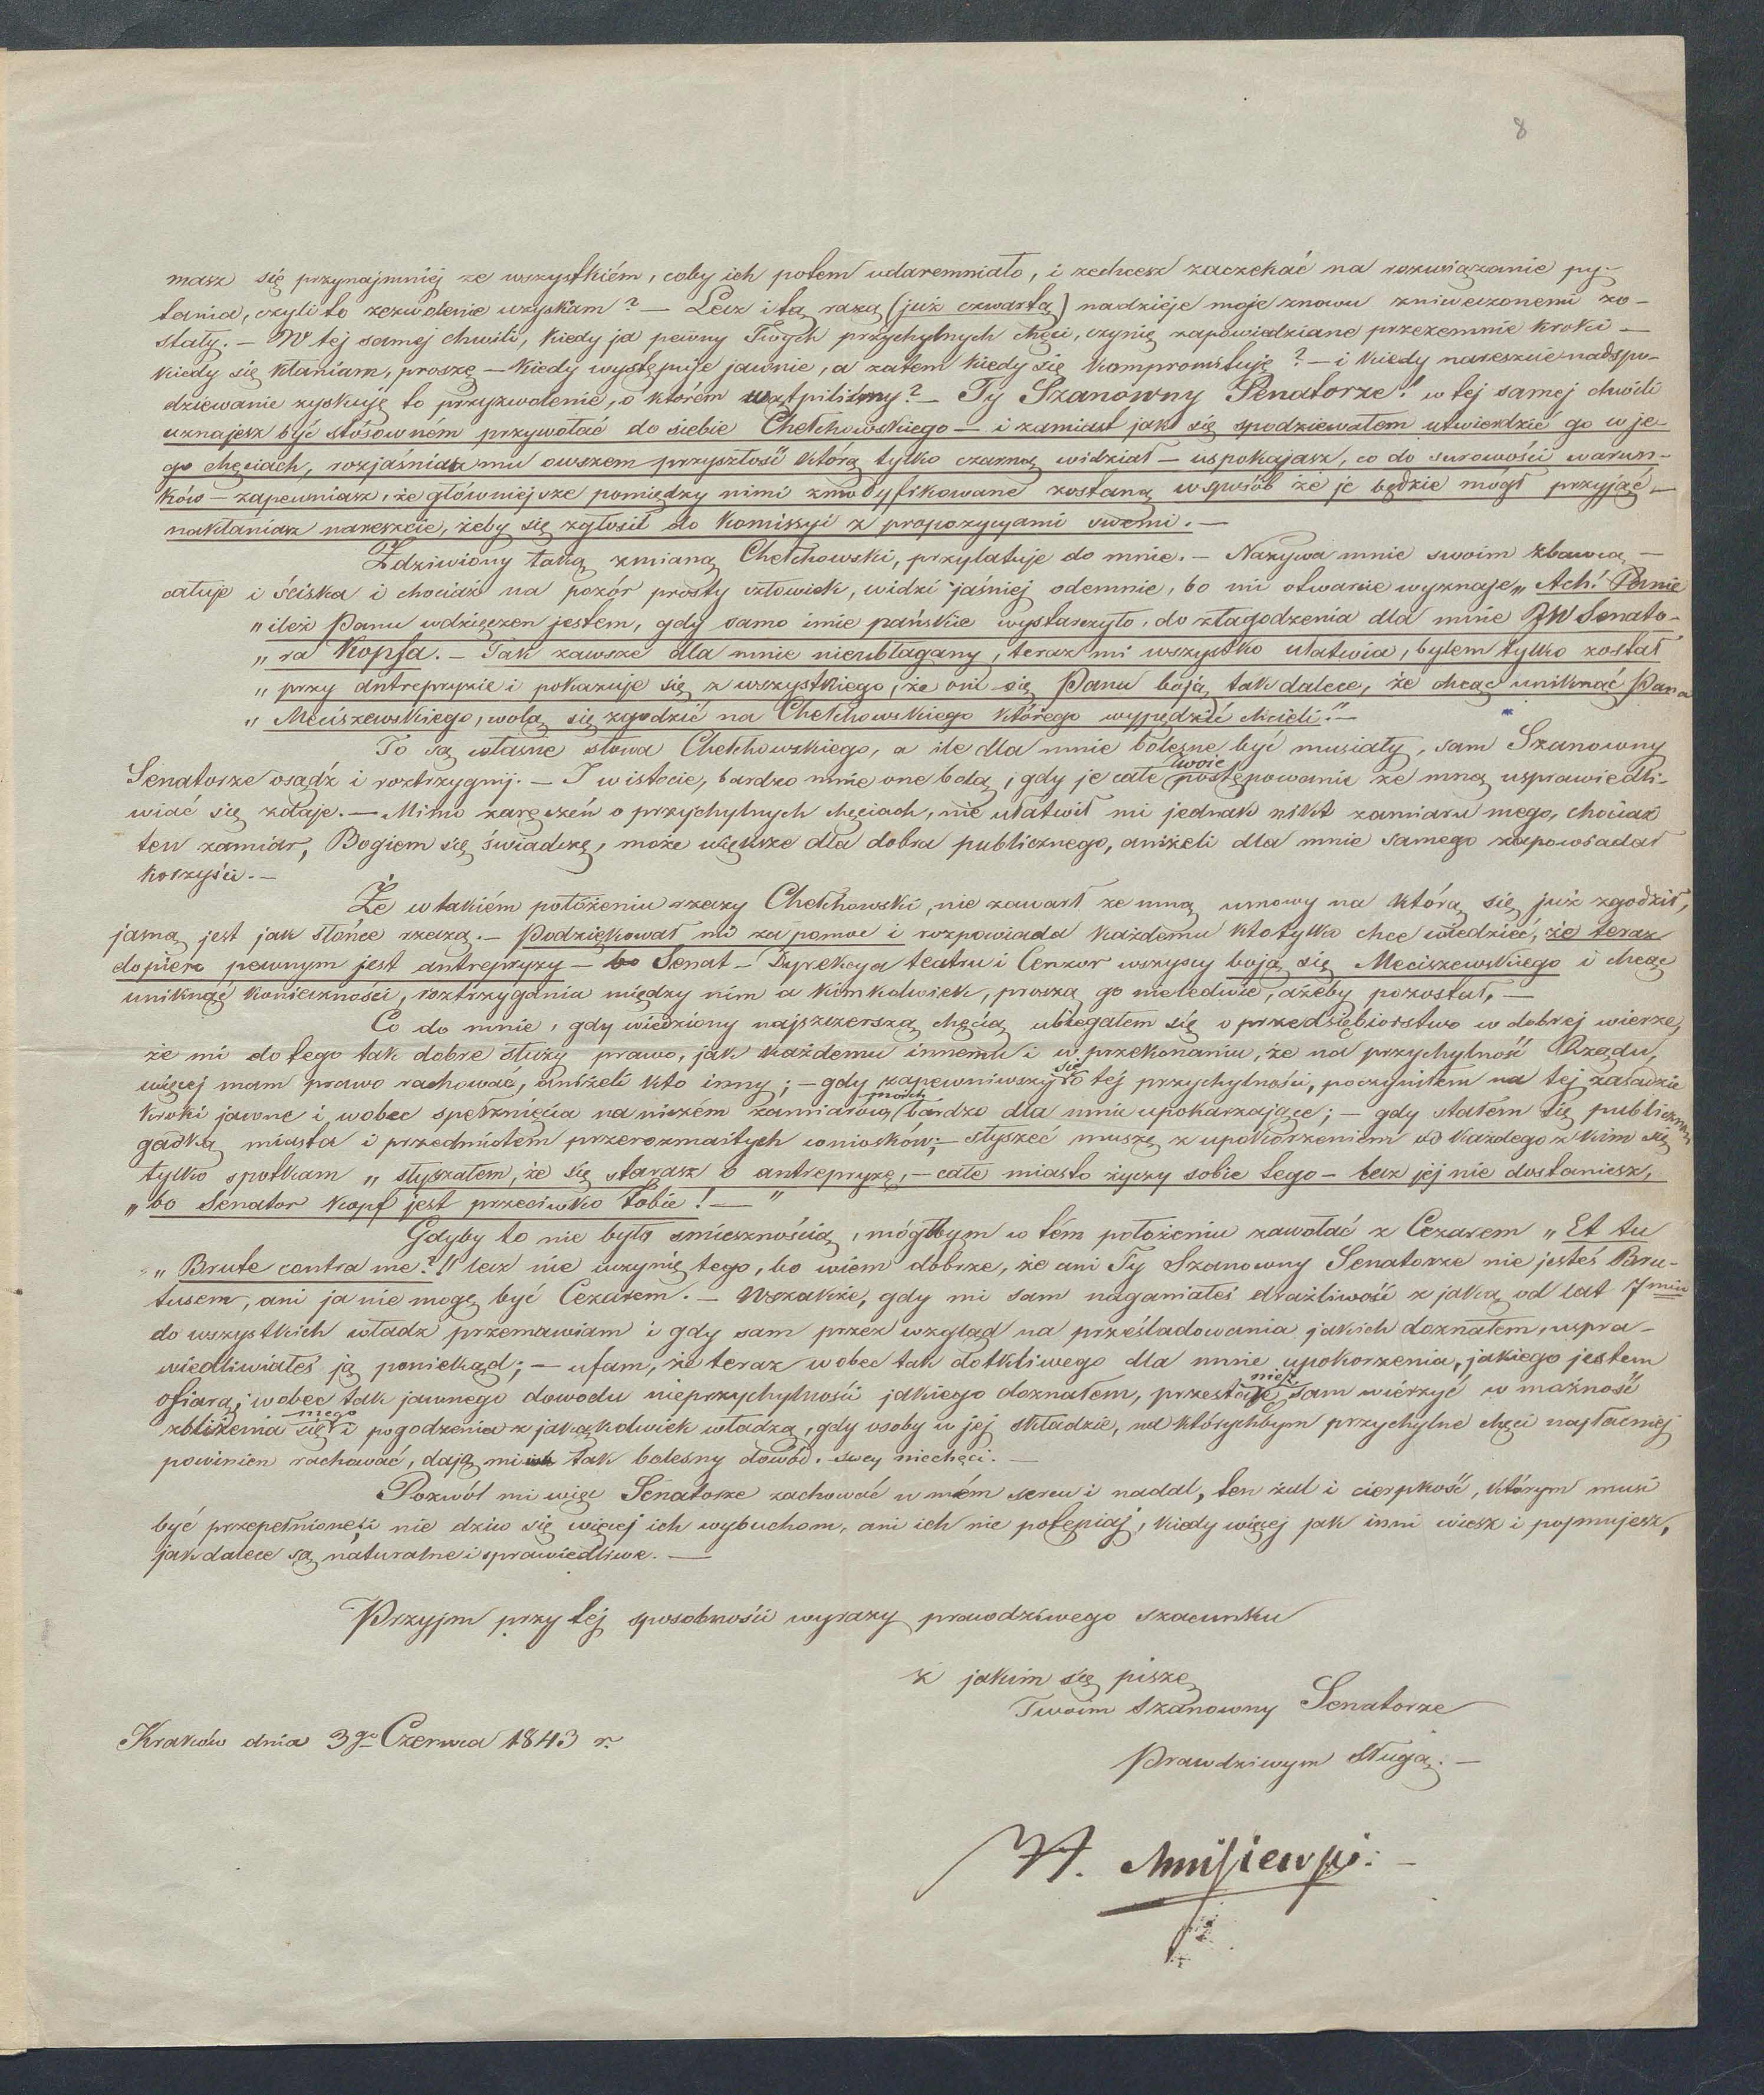 8
masz się przynajmniej ze wszystkiém, coby ich potem udaremniało, i zechcesz zaczekać na rozwiązanie py-
tania, czyli to zezwolenie uzyskam? — Lecz i tą razą (już czwartą) nadzieje moje znowu zniweczonemi zo-
stały. — W tej samej chwili, kiedy ja pewny Twych przychylnych chęci, czynię zapowiedziane przezemnie kroki —
kiedy się kłaniam, proszę — kiedy występuje jawnie, a zatem kiedy się kompromituję? — i kiedy nareszcie nadspo-
dziewanie zyskuję to przyzwolenie, o którém wątpiliśmy? — Ty Szanowny Senatorze! w tej samej chwili
uznajesz być stósowném przywołać do siebie Chełchowskiego — i zamiast jak się spodziewałem utwierdzić go w je-
go chęciach, rozjaśniasz mu owszem przyszłość którą tylko czarną widział — uspokajasz, co do surowości warun-
ków — zapewniasz, że główniejsze pomiędzy nimi zmodyfikowane zostaną w sposób że je będzie mógł przyjąć —
nakłaniasz nareszcie, żeby się zgłosił do Komissyi z propozycyami swemi. —
Zdziwiony taką zmianą Chełchowski, przylatuje do mnie. — Nazywa mnie swoim zbawcą —
całuje i ściska i chociaż na pozór prosty człowiek, widzi jaśniej odemnie, bo mi otwarcie wyznaje „Ach! Panie
„ileż Panu wdzięczen jestem, gdy samo imie pańskie wystarczyło, do złagodzenia dla mnie JW Senato-
„ra Kopfa. — Tak zawsze dla mnie nieubłagany, teraz mi wszystko ułatwia, bylem tylko został
„przy antrepryzie i pokazuje się z wszystkiego, że oni się Pana boją tak dalece, że chcąc uniknąć Pana
„Meciszewskiego, wolą się zgodzić na Chełchowskiego którego wypędzić chcieli." —
To są własne słowa Chełchowskiego, a ile dla mnie bolesne być musiały, sam Szanowny
Senatorze osądź i roztrzygnij. — I w istocie, bardzo mnie one bolą, gdy je całe Twoje postępowanie ze mną usprawiedli-
wiać się zdaje. — Mimo zaręczeń o przychylnych chęciach, nie ułatwił mi jednak nikt zamiaru mego, chociaż
ten zamiar, Bogiem się świadczę, może większe dla dobra publicznego, aniżeli dla mnie samego zapowiadał
korzyści. —
Że w takiém położeniu rzeczy Chełchowski, nie zawarł ze mną umowy na którą się już zgodził,
jasną jest jak słońce rzeczą. — Podziękował mi za pomoc i rozpowiada każdemu kto tylko chce wiedzieć, że teraz
dopiero pewnym jest antrepryzy — bo Senat — Dyrekcya teatru i Cenzor wszyscy boją się Meciszewskiego i chcąc
uniknąć konieczności, roztrzygania między nim a kimkolwiek, proszą go nieledwie, ażeby pozostał. —
Co do mnie, gdy wiedziony najszczerszą chęcią ubiegałem się o przedsiębiorstwo w dobrej wierze,
że mi do tego tak dobre służy prawo, jak każdemu innemu i w przekonaniu, że na przychylność Rządu,
więcej mam prawo rachować, aniżeli kto inny; — gdy zapewniwszy się o tej przychylności, poczyniłem na tej zasadzie
kroki jawne i wobec spełznięcia na niczém zamiarów moich bardzo dla mnie upokarzające; — gdy stałem się publiczną
gadką miasta i przedmiotem przerozmaitych wniosków; — słyszeć muszę z upokorzeniem od każdego z kim się
tylko spotkam „słyszałem, że się starasz o antrepryzę, — całe miasto życzy sobie tego — lecz jej nie dostaniesz,
„bo Senator Kopf jest przeciwko Tobie! — "
Gdyby to nie było smiesznością, mógłbym w tém położeniu zawołać z Cezarem „Et tu
„Brute contra me?!" lecz nie uczynię tego, bo wiem dobrze, że ani Ty Szanowny Senatorze nie jesteś Bru-
tusem, ani ja nie mogę być Cezarem. — Wszakże, gdy mi sam naganiałeś drażliwość z jaką od lat 7miu
do wszystkich władz przemawiam i gdy sam przez wzgląd na prześladowania jakich doznałem, uspra-
wiedliwiałeś ją poniekąd; — ufam, że teraz wobec tak dotkliwego dla mnie upokorzenia, jakiego jestem
ofiarą; wobec tak jawnego dowodu nieprzychylności jakiego doznałem, przestaniesz sam wierzyć w możność
zbliżenia się niego i pogodzenia z jakąkolwiek władzą, gdy osoby w jej składzie, na którychbym przychylne chęci najłacniej
powinien rachować, dają mi tak bolesny dowód swey niechęci. —
Pozwól mi więc Senatorze zachować w mém sercu i nadal, ten żal i cierpkość, którym musi
być przepełnione, i nie dziw się więcej ich wybuchom, ani ich nie potępiaj, kiedy więcej jak inni wiesz i pojmujesz,
jak dalece są naturalne i sprawiedliwe. —
Przyjm przy tej sposobności wyrazy prawdziwego szacunku
z jakim się piszę
Twoim Szanowny Senatorze
Prawdziwym Sługą. —
Kraków dnia 3go Czerwca 1843 r.
H. Meciszewski. —